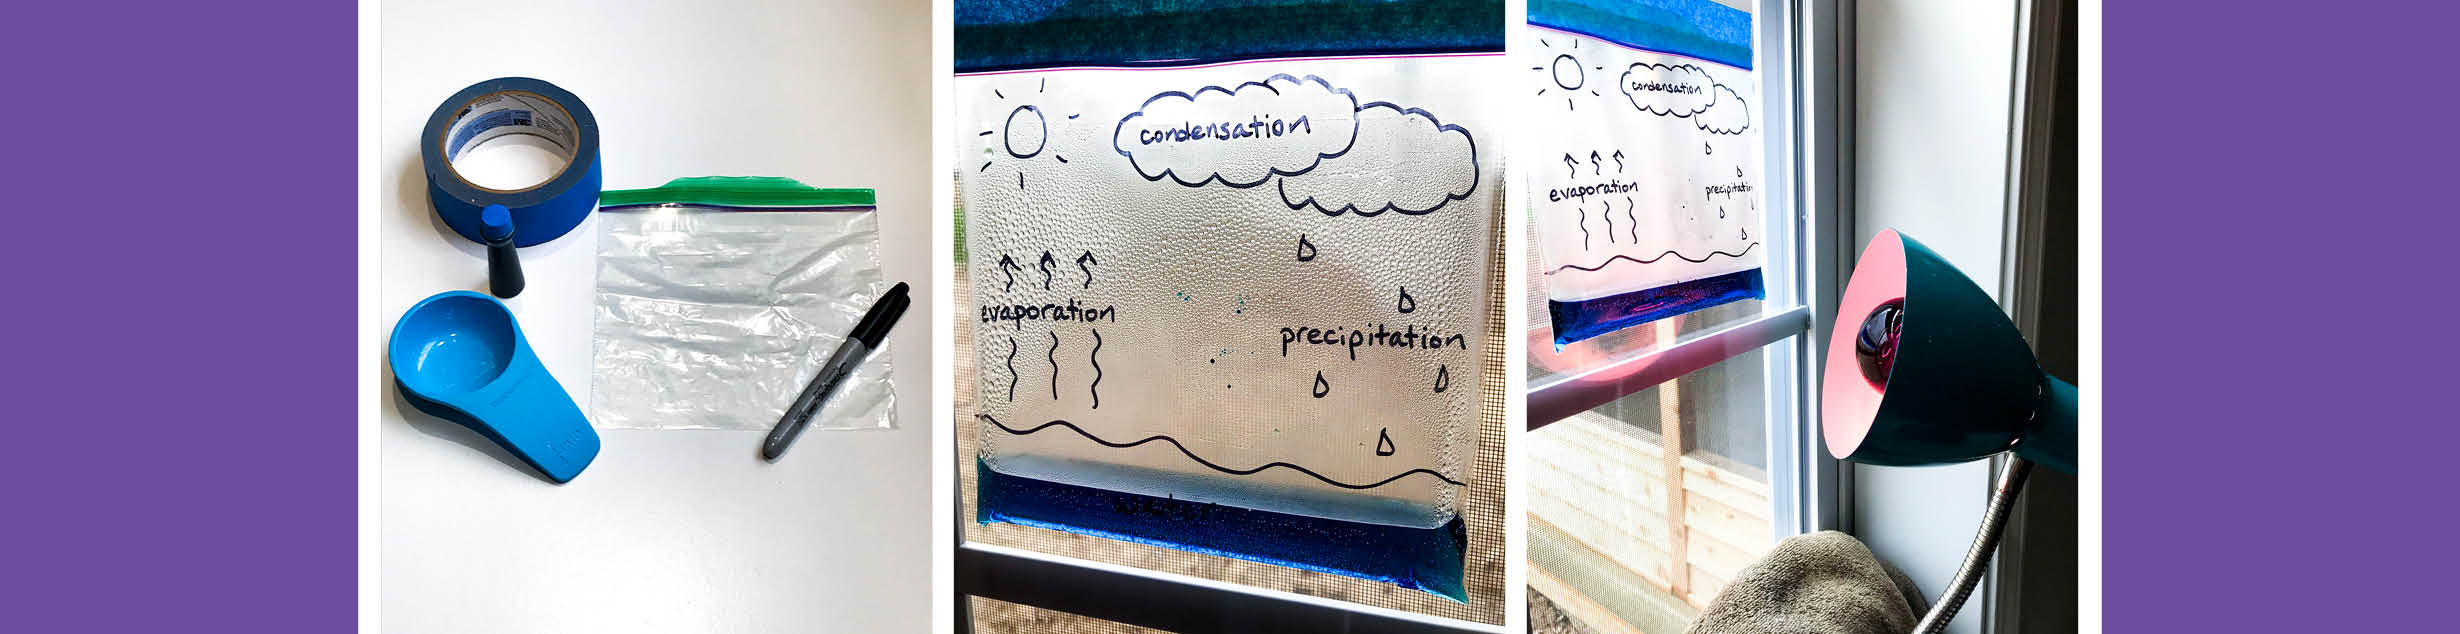 Sharpie
condensation
evaporation
precipitation
water
condensation
evaporation
precipitation